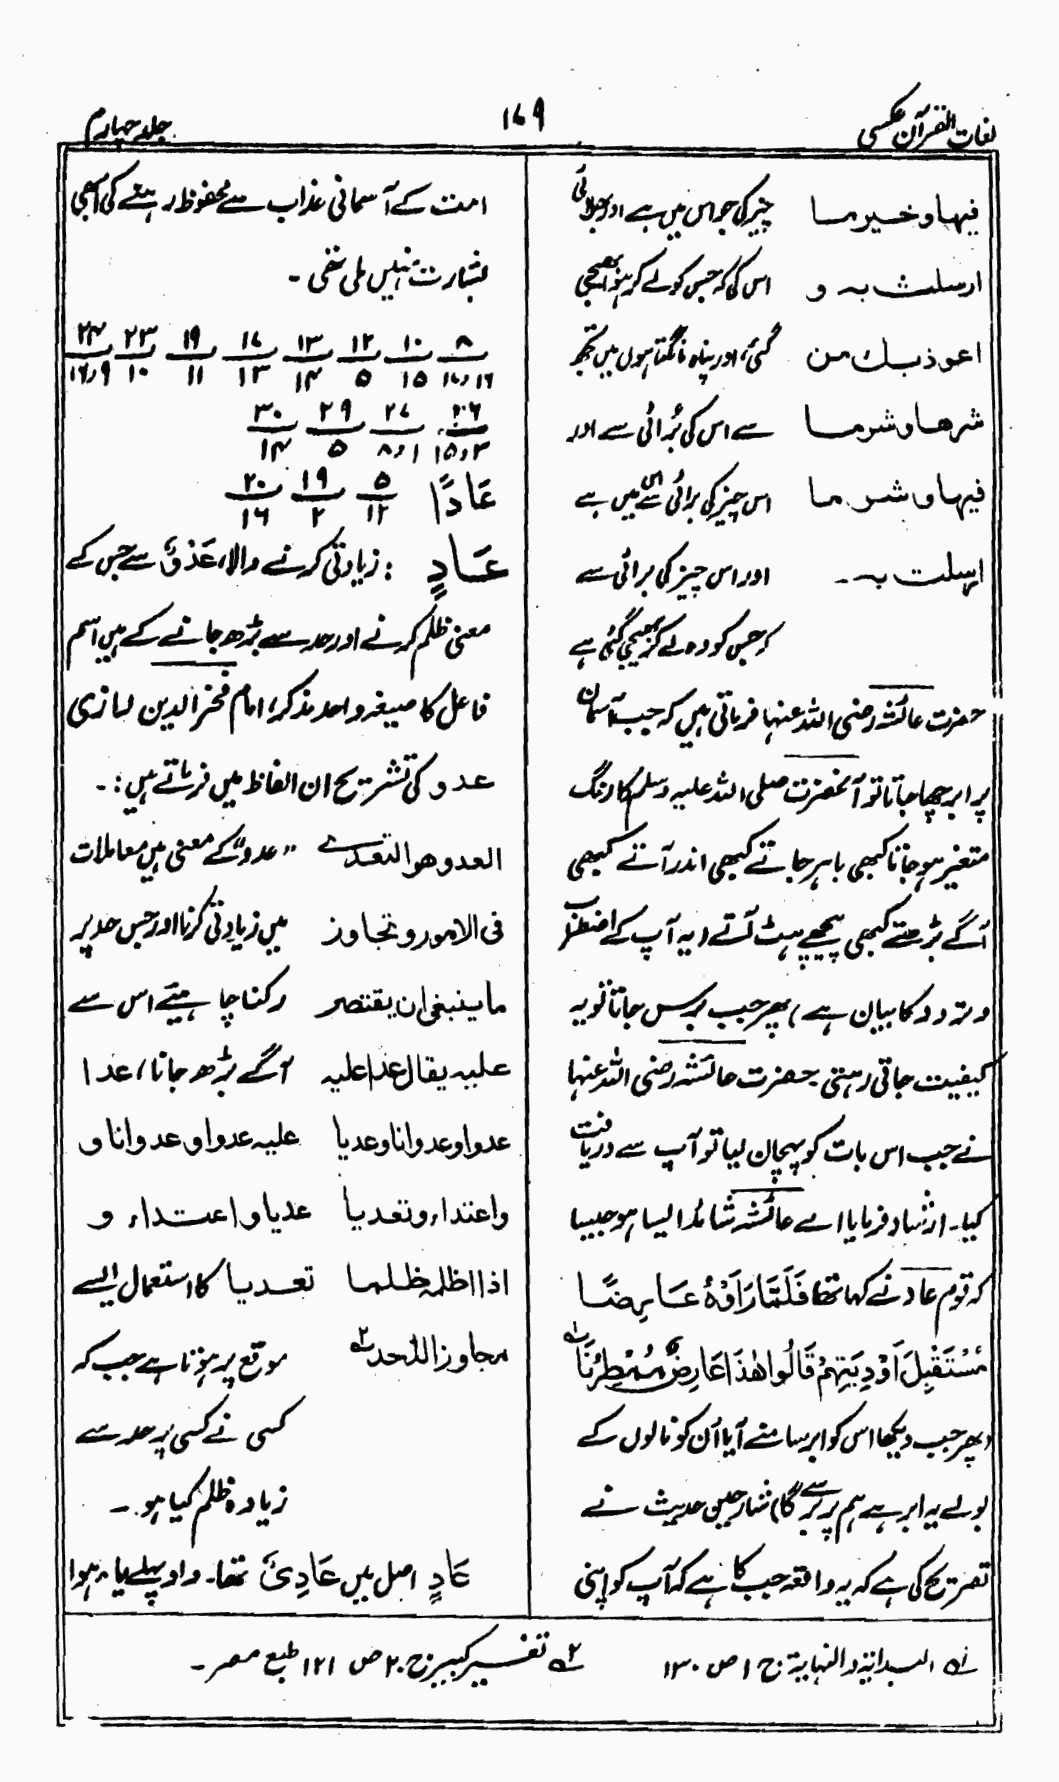 لغات القرآن عکسی
۱۷۹
جلد چہارم
فیہا وخیر ما چیز کی جو اس میں ہے اور بھلائی
ارسلت بہ و اس کی کہ جس کو لے کر ہوا بھیجی
اعوذ بك من گئی، اور پناہ مانگتا ہوں میں تجھ
شرھا وشر ما سے اس کی بُرائی سے اور
فیہا و شر ما اس چیز کی برائی سے جو اس میں ہے
ارسلت بہ۔ اور اس چیز کی برائی سے
کہ جس کو وہ لے کر بھیجی گئی ہے
حضرت عائشہ رضی اللہ عنہا فرماتی ہیں کہ جب آسمان
پر ابر چھا جاتا تو آنحضرت صلی اللہ علیہ وسلم کا رنگ
متغیر ہو جاتا کبھی باہر جاتے کبھی اندر آتے کبھی
آگے بڑھتے کبھی پیچھے ہٹ آتے (یہ آپ کے اضطراب
و تردد کا بیان ہے) پھر جب برس جاتا تو یہ
کیفیت جاتی رہتی۔ حضرت عائشہ رضی اللہ عنہا
نے جب اس بات کو پہچان لیا تو آپ سے دریافت
کیا۔ ارشاد فرمایا اے عائشہ شائد ایسا ہو جیسا
کہ قوم عاد نے کہا تھا فَلَمَّا رَاَوْهُ عَارِضًا
مُّسْتَقْبِلَ اَوْدِيَتِهِمْ قَالُوْا هٰذَا عَارِضٌ مُّمْطِرُنَا ۱ے
(پھر جب دیکھا اس کو ابر سامنے آیا اُن کو نالوں کے
بولے یہ ابر ہے ہم پر برسے گا) شارحین حدیث نے
تصریح کی ہے کہ یہ واقعہ جب کا ہے کہ آپ کو اپنی
امت کے آسمانی عذاب سے محفوظ رہنے کی ابھی
بشارت نہیں ملی تھی۔
۸ ۱۰ ۱۲ ۱۳ ۱۷ ۱۹ ۲۳ ۲۴
۱۶، ۱۷ ۱۵ ۵ ۱۴ ۱۳ ۱۱ ۱۰ ۹، ۱۶
۲۶ ۲۷ ۲۹ ۳۰
۳، ۱۵ ۱، ۸ ۵ ۱۴
عَادًا ۵ ۱۹ ۲۰
۱۲ ۲ ۱۶
عَادٍ : زیادتی کرنے والا، عَدْوٌ سے جس کے
معنی ظلم کرنے اور حد سے بڑھ جانے کے ہیں اسم
فاعل کا صیغہ واحد مذکر، امام فخر الدین رازی
عدو کی تشریح ان الفاظ میں فرماتے ہیں:۔
العدو ھو التعدی "عدو" کے معنی ہیں معاملات
فی الامور و تجاوز میں زیادتی کرنا اور جس حد پر
ما ینبغی ان یقتصر رکنا چاہیئے اس سے
علیہ یقال عدا علیہ آگے بڑھ جانا، عدا
عدوا وعدوانا وعدیا علیہ عدوا وعدوانا و
واعتداء وتعدیا عدیا واعتداء و
اذا ظلمہ ظلما تعدیا کا استعمال ایسے
مجاوزا للحد ۲ے موقع پر ہوتا ہے جب کہ
کسی نے کسی پر حد سے
زیادہ ظلم کیا ہو۔
عَادٍ اصل میں عَادِیٌ تھا۔ واو پہلے یاء ہوا
۱ے البدایۃ والنہایۃ ج ۱ ص ۱۳۰ ۲ے تفسیر کبیر ج ۲۰ ص ۱۲۱ طبع مصر۔